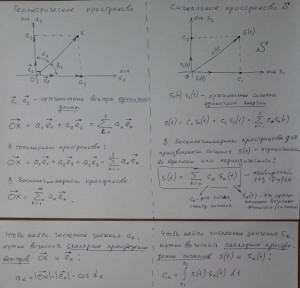 Геометрическое пространство
e₁, e₂ - ортогональные вектора единичной
длины
OX = a₁e₁ + a₂e₂ = Σ aₖeₖ
В трехмерном пространстве:
OX = a₁e₁ + a₂e₂ + a₃e₃ = Σ aₖeₖ
В бесконечномерном пространстве:
OX = Σ aₖeₖ
Чтобы найти численные значения aₖ,
нужно вычислить скалярные произведения
векторов OX и eₖ:
aₖ = |OX|·|eₖ|·cos αₖ
Сигнальное пространство S
S₁(t) S₂(t) - ортогональные сигналы
единичной энергии
S(t) = C₁S₁(t) + C₂S₂(t) = Σ CₖSₖ(t)
В бесконечномерном пространстве для
сигнала S(t) - ограниченного
во времени или периодического:
S(t) = Σ CₖSₖ(t) - обобщенный
ряд Фурье
Чтобы найти численные значения Cₖ,
нужно вычислить скалярные произведения
сигналов S(t) и Sₖ(t):
Cₖ = ∫ S(t) Sₖ(t) dt